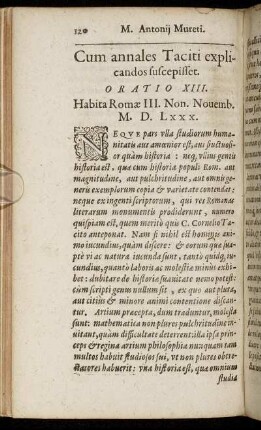 120 M. Antonij Mureti.
Cum annales Taciti expli-
candos suscepisset.
ORATIO XIII.
Habita Romæ III. Non. Nouemb.
M. D. LXXX.
NEQVE pars vlla studiorum huma-
nitatis aut amœnior est, aut fructuosi-
or quàm historia: neq, vllius gentis
historia est, quæ cum historia populi Rom. aut
magnitudine, aut pulchritudine, aut omnis ge-
neris exemplorum copia & varietate contendat:
neque ex ingentis criptorum, qui res Romanas
literarum monumentis prodiderunt, numero
quisquam est, quem meritò quis C. Cornelio Ta-
cito anteponat. Nam si nihil est homini ani-
mo iucundius, quàm discere: & eorum quæ sua-
pte vi ac natura iucunda sunt, tantò quidq, iu-
cundius, quantò laboris ac molestiæ minus exhi-
bet: dubitare de historiæ suauitate nemo potest:
cùm scripti genus nullum sit, ex quo aut plura,
aut citius & minore animi contentione discan-
tur. Artium præcepta, dum traduntur, molesta
sunt: mathematica non plures pulchritudine in-
uitant, quàm difficultate deterrent: illa ipsa prin-
ceps & regina artium philosophia nunquam tam
multos habuit studiosos sui, vt non plures obtre-
ctatores habuerit: vna historia est, quæ omnium
studia